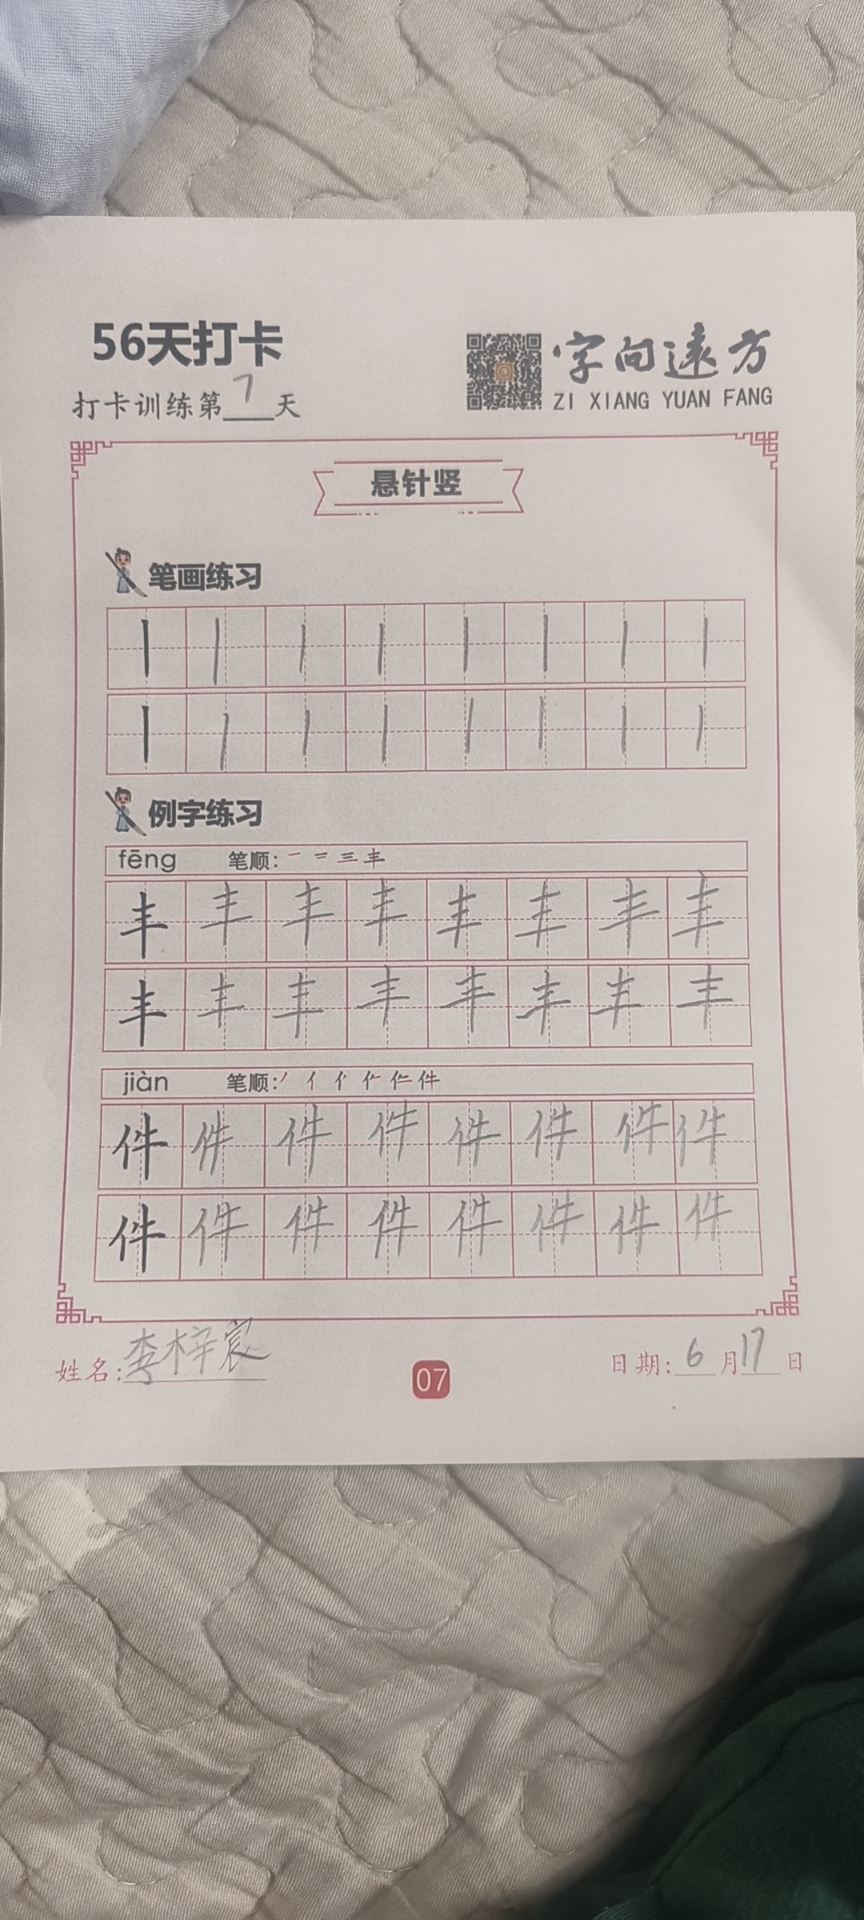 56天打卡
打卡训练第7天
字向远方
ZI XIANG YUAN FANG
悬针竖
笔画练习
丨丨丨丨丨丨丨丨
丨丨丨丨丨丨丨丨
例字练习
fēng 笔顺: 一 二 三 丰
丰丰丰丰丰丰丰丰
丰丰丰丰丰丰丰丰
jiàn 笔顺: 丿 亻 件
件件件件件件件件
件件件件件件件件
姓名:李梓宸
07
日期:6月17日